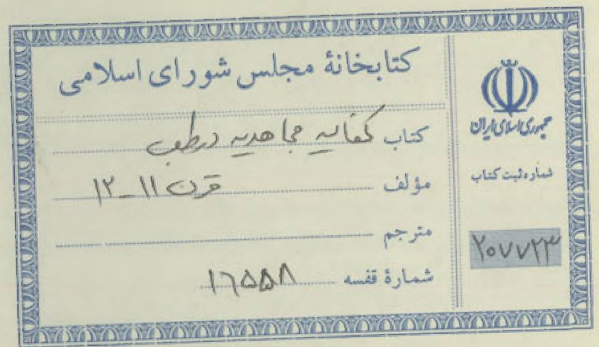 کتابخانهٔ مجلس شورای اسلامی
کتاب کفایه مجاهدیه در طب
مؤلف قرن ۱۱-۱۲
مترجم
شمارهٔ قفسه ۱۶۵۵۸
جمهوری اسلامی ایران
شماره ثبت کتاب
۲۰۷۷۲۳